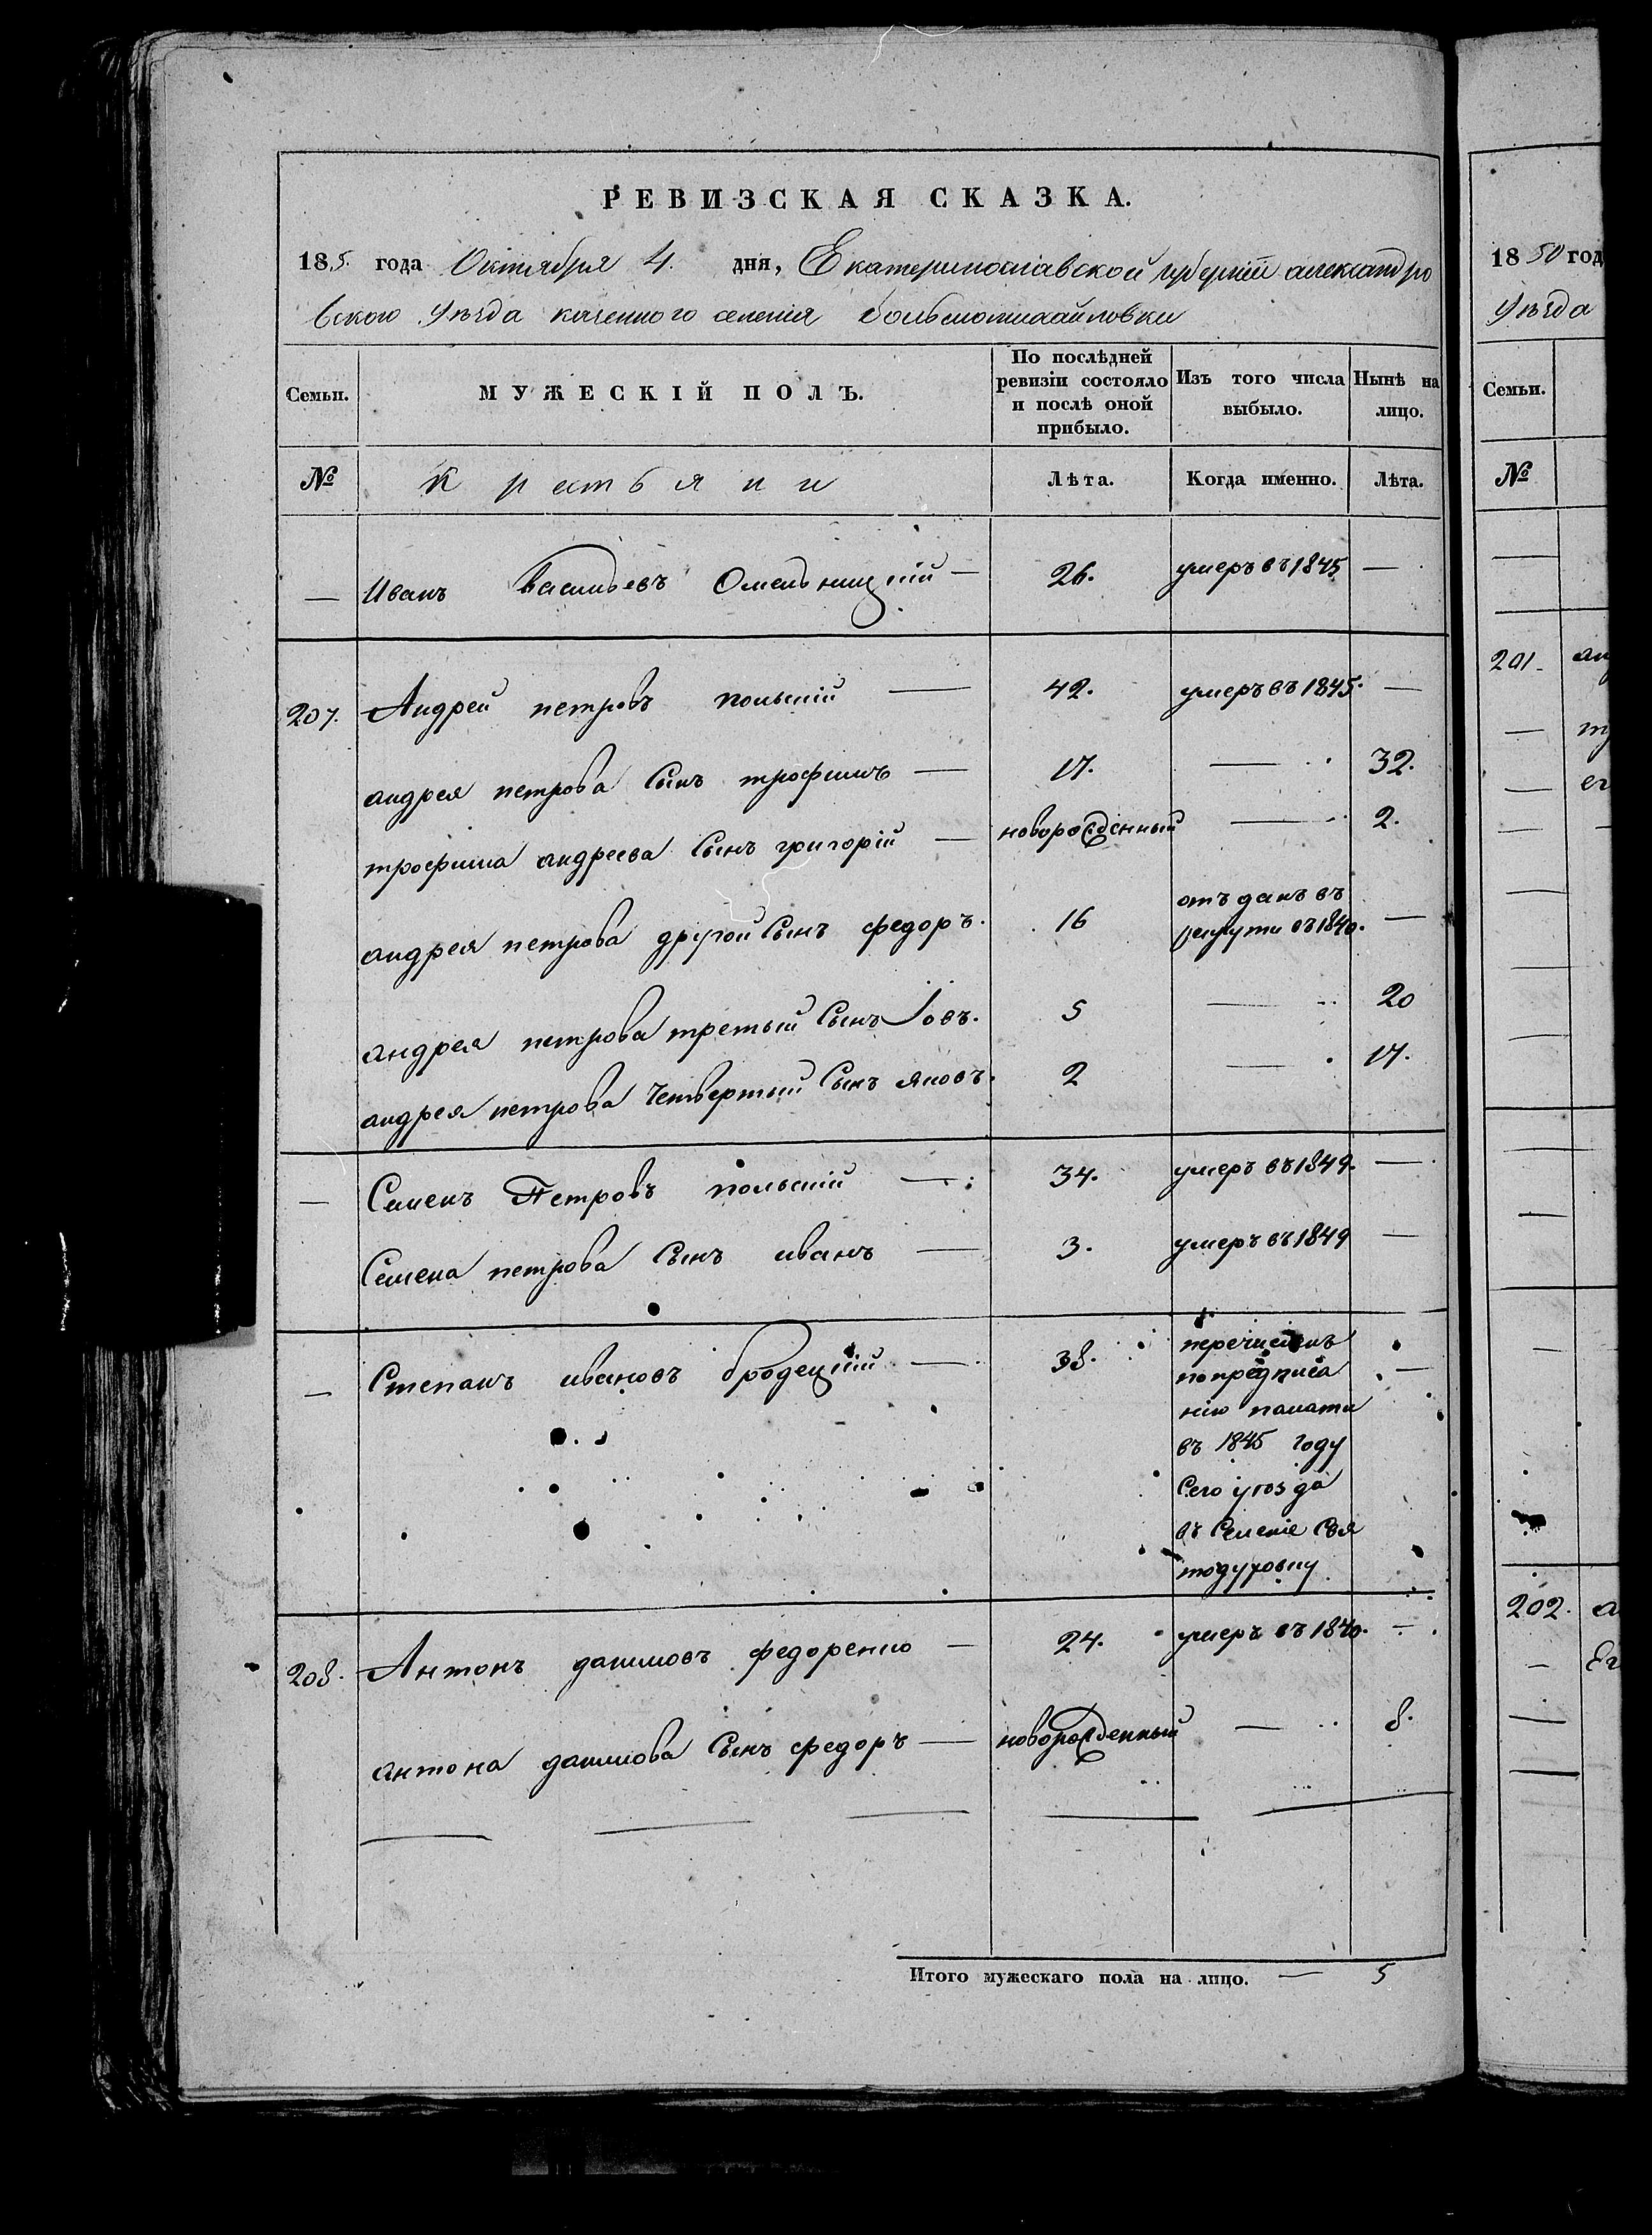 РЕВИЗСКАЯ СКАЗКА.
185. года Октября 4. дня, Екатеринославской губерніи александро
вского уѣзда казенного селенія большомихайловки
Семьи. МУЖЕСКІЙ ПОЛЪ. По послѣдней ревизіи состояло и послѣ оной прибыло. Изъ того числа выбыло. Нынѣ на лицо.
№ Крестьяни Лѣта. Когда именно. Лѣта.
— Иванъ Васильевъ Омельницкій — 26. умеръ въ 1845 —
207. Андрей петровъ польскій — 42. умеръ въ 1845. —
андрея петрова Сынъ трофимъ — 17. — 32.
трофима андреева Сынъ григорій — новорожденный — 2.
андрея петрова другой Сынъ федоръ. 16 отъданъ въ
рекруты въ 1840. —
андрея петрова третый Сынъ Іовъ. 5 — 20
андрея петрова Четвертый Сынъ яковъ. 2 17.
— Семенъ Петровъ польскій — 34. умеръ въ 1849. —
Семена петрова Сынъ иванъ — 3. умеръ въ 1849 —
— Степанъ ивановъ бродецкій — 38. перечисленъ
по предписа —
нію палати
въ 1845 году
Сего уѣзда
въ Селеніе Свя
тодуховку
208. Антонъ даниловъ федоренко — 24. умеръ въ 1840. —
антона данилова Сынъ федоръ — новорожденный — 8.
Итого мужескаго пола на лицо. — 5
1850 год
уѣзда
Семьи.
№
201.
202.